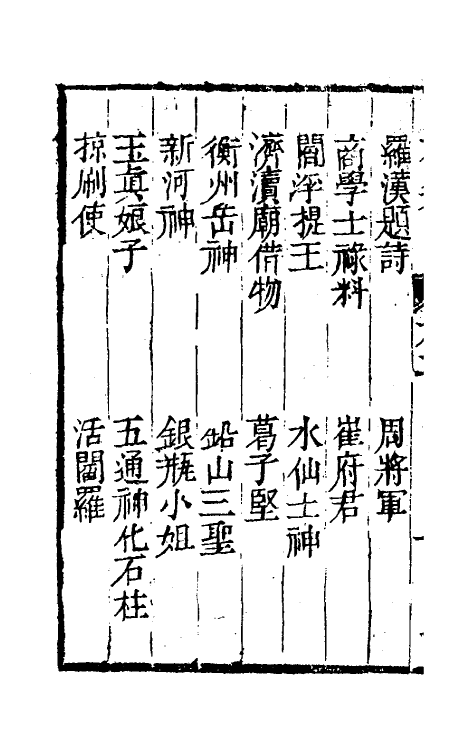 羅漢題詩　周將軍
商學士祿料　崔府君
閻浮提王　水仙土神
濟瀆廟借物　葛子堅
衡州岳神　鉛山三聖
新河神　銀瓶小姐
玉眞娘子　五通神化石柱
掠刷使　活閻羅